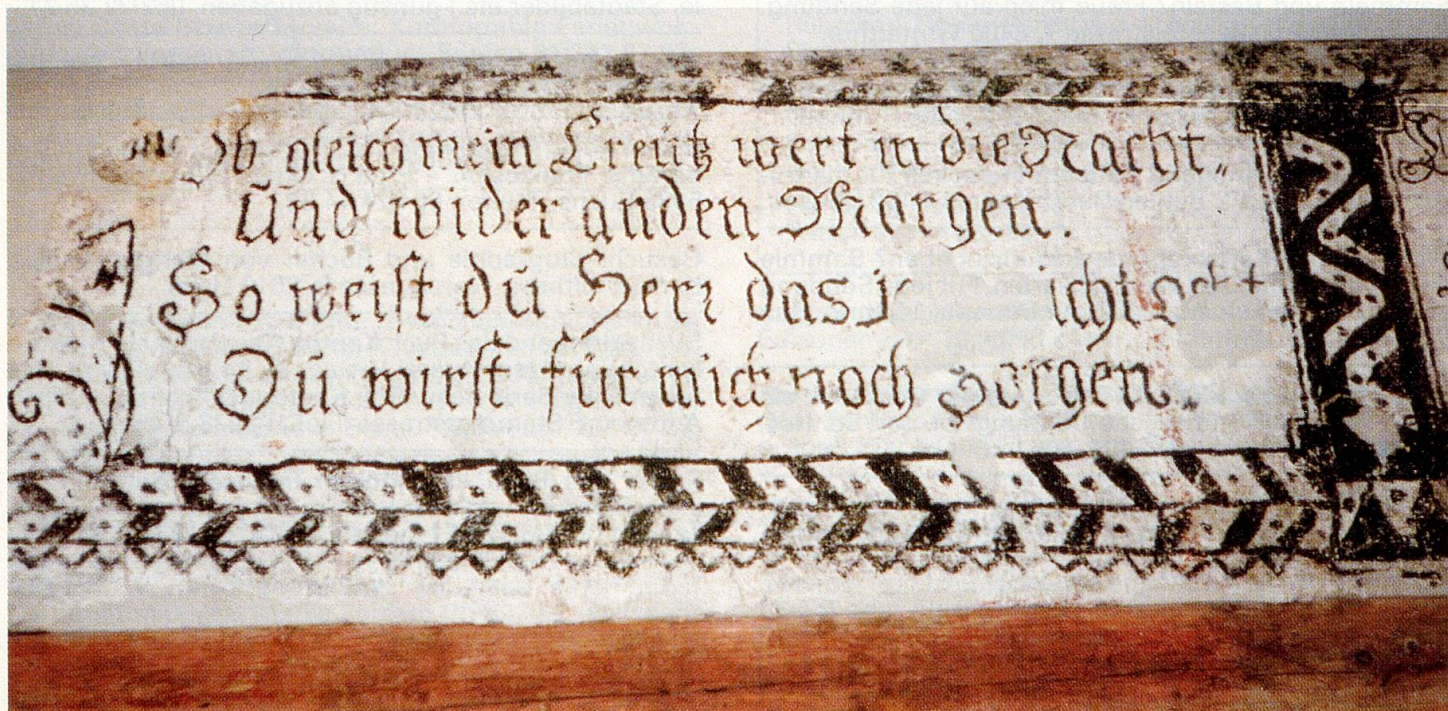 Ob gleich mein Creütz wert in die Nacht„
Und wider an den Morgen.
So weist dü Herr das icht
Dü wirst für mich noch Sorgen„